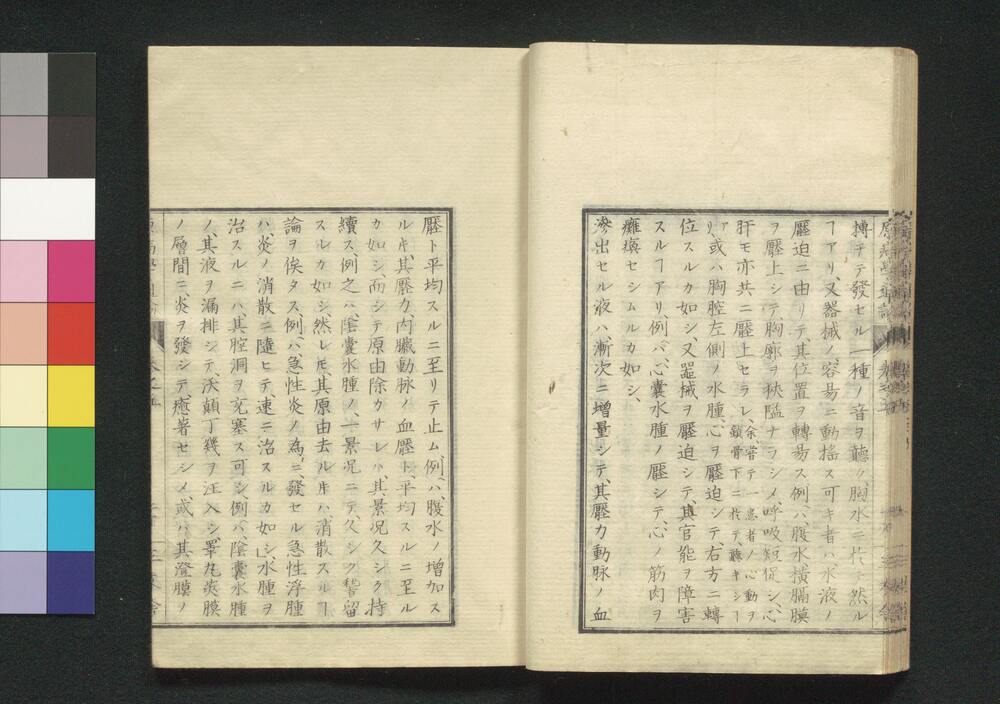 搏チテ發セル一種ノ音ヲ聽ク、胸水ニ於テ然ル
ヿアリ、又器械ノ、容易ニ動搖ス可キ者ハ、水液ノ
壓迫ニ由リテ、其位置ヲ轉昜ス、例ハ、腹水橫膈膜
ヲ壓上シテ、胸廓ヲ狹隘ナラシメ、呼吸短促シ、心
肝モ亦共ニ壓上セラレ、余、甞テ一患者ノ心動ヲ
鎖骨下ニ於テ、聽キシヿ
アリ或ハ胸腔左側ノ水腫、心ヲ壓迫シテ、右方ニ轉
位スルカ如シ、又噐械ヲ壓迫シテ、其官能ヲ障害
スルヿアリ、例バ、心囊水腫ノ壓シテ、心ノ筋肉ヲ
癱瘓セシムルカ如シ、
滲出セル液ハ、漸次ニ增量シテ、其壓力動脉ノ血
壓ト平均スルニ至リテ止ム、例ハ、腹水ノ增加ス
ルキ、其壓力、内臟動脉ノ血壓ト、平均スルニ至ル
カ如シ、而シテ原由除カサレハ、其景况久シク持
續ス、例之ハ、陰囊水腫ノ、一景况ニテ、久シク㽞留
スルカ如シ、然レ𪜈、其原由去ルキハ、消散スルヿ
論ヲ俟タス、例ハ、急性炎ノ為ニ發セル急性浮腫
ハ、炎ノ消散ニ隨ヒテ、速ニ治スルカ如シ、水腫ヲ
治スルニハ、其腔洞ヲ充塞ス可シ、例バ、陰囊水腫
ノ、其液ヲ漏排シテ、沃顛丁幾ヲ注入シ、睾丸莢膜
ノ層間ニ炎ヲ發シテ、癒著セシメ、或ハ、其澄膜ノ